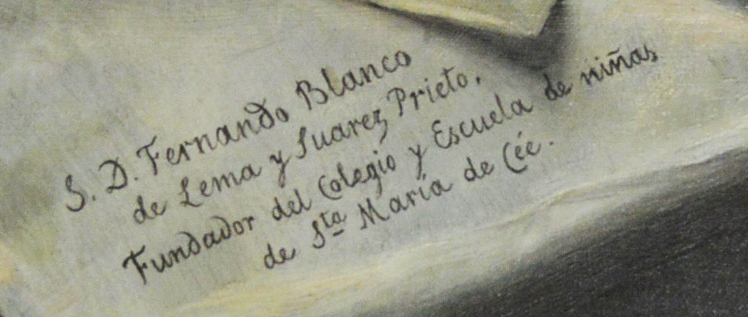 S. D. Fernando Blanco
de Lema y Suarez Prieto,
Fundador del Colegio y Escuela de niñas
de Sta María de Cée.